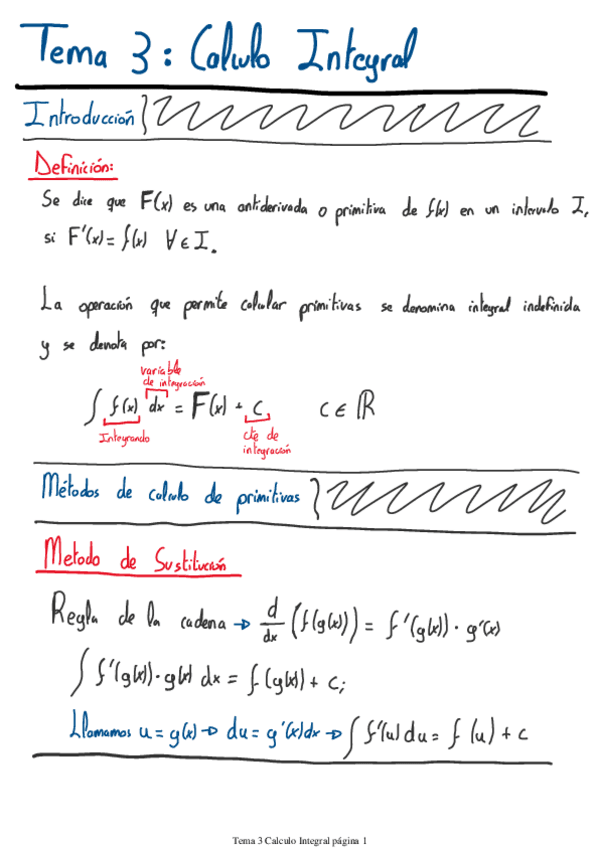 Tema 3: Calculo Integral
Introducción
Definición:
Se dice que F(x) es una antiderivada o primitiva de f(x) en un intervalo I,
si F'(x) = f(x) ∀ ∈ I.
La operación que permite calcular primitivas se denomina integral indefinida
y se denota por:
variable
de integración
∫ f(x) dx = F(x) + c, c ∈ ℝ
Integrando
cte de
integración
Métodos de calculo de primitivas
Metodo de Sustitución
Regla de la cadena → d/dx (f(g(x))) = f'(g(x)) · g'(x)
∫ f'(g(x)) · g(x) dx = f(g(x)) + c;
Llamamos u = g(x) → du = g'(x)dx → ∫ f'(u) du = f(u) + c
Tema 3 Calculo Integral página 1